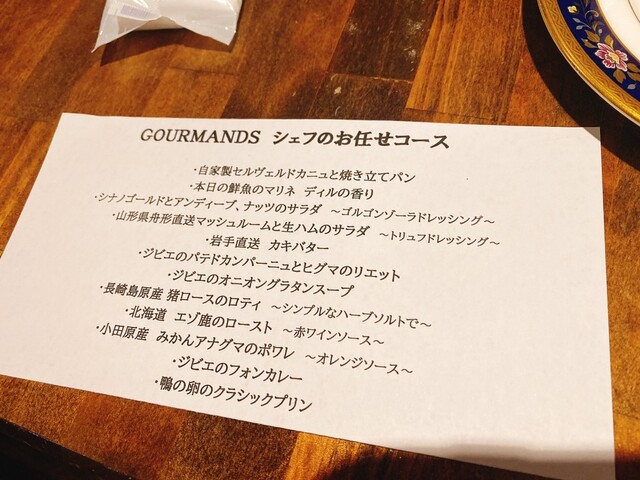 GOURMANDS シェフのお任せコース
・自家製セルヴェルドカニュと焼き立てパン
・本日の鮮魚のマリネ ディルの香り
・シナノゴールドとアンディーブ、ナッツのサラダ ～ゴルゴンゾーラドレッシング～
・山形県舟形直送マッシュルームと生ハムのサラダ ～トリュフドレッシング～
・岩手直送 カキバター
・ジビエのパテドカンパーニュとヒグマのリエット
・ジビエのオニオングラタンスープ
・長崎島原産 猪ロースのロティ ～シンプルなハーブソルトで～
・北海道 エゾ鹿のロースト ～赤ワインソース～
・小田原産 みかんアナグマのポワレ ～オレンジソース～
・ジビエのフォンカレー
・鴨の卵のクラシックプリン